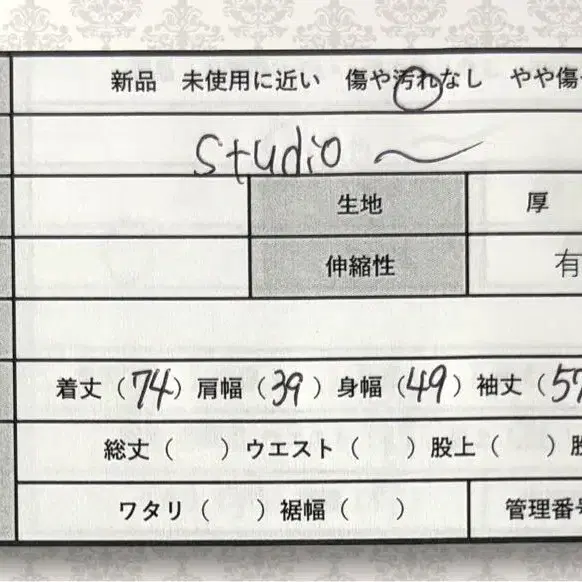 新品 未使用に近い 傷や汚れなし やや傷
studio 〜
生地 厚
伸縮性 有
着丈（74）肩幅（39）身幅（49）袖丈（57
総丈（ ）ウエスト（ ）股上（ ）股
ワタリ（ ）裾幅（ ） 管理番号